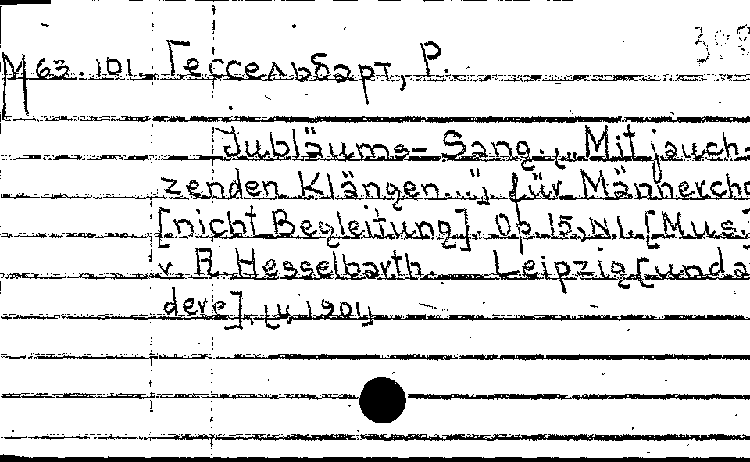 308
М 63.101. Гессельбарт, Р.
Jubläums-Sang. „Mit jauch-
zenden Klängen..." für Männercho
[nicht Begleitung]. Op. 15, N1. [Mus.
v R Hesselbarth. Leipzig [unda
dere], [u, 1904]